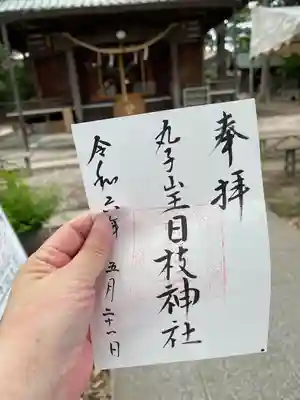 奉拝
丸子山王日枝神社
令和六年 五月二十一日